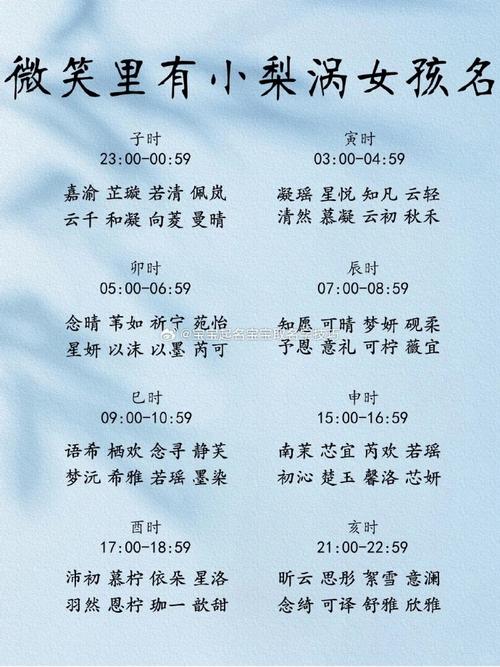 微笑里有小梨涡女孩名
子时
23:00-00:59
嘉渝 芷璇 若清 佩岚
云千 和凝 向菱 曼晴
寅时
03:00-04:59
凝瑶 星悦 知凡 云轻
清然 慕凝 云初 秋禾
卯时
05:00-06:59
念晴 苇如 祈宁 苑怡
星妍 以沫 以墨 芮可
辰时
07:00-08:59
知愿 可晴 梦妍 砚柔
予恩 意礼 可柠 薇宜
@宝宝起名宝宝取名字
巳时
09:00-10:59
语希 栖欢 念寻 静芙
梦沅 希雅 若瑶 墨染
申时
15:00-16:59
南茉 芯宜 芮欢 若瑶
初沁 楚玉 馨洛 芯妍
酉时
17:00-18:59
沛初 慕柠 依朵 星洛
羽然 恩柠 珈一 歆甜
亥时
21:00-22:59
昕云 思彤 絮雪 意澜
念绮 可译 舒雅 欣雅